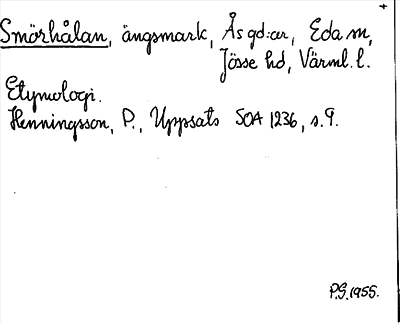 Smörhålan, ängsmark, Ås gd:ar, Eda sn,
Jösse hd, Värml. l.
Etymologi.
Henningsson, P., Uppsats SOA 1236, s. 9.
P.G. 1955.